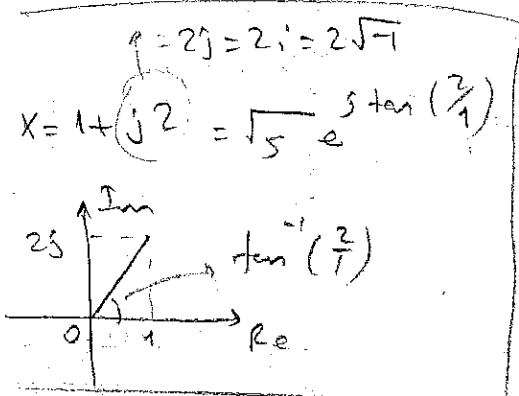 = 2j = 2i = 2√-1
X = 1 + j2 = √5 e^(j tan(2/1))
Im
2j
tan⁻¹(2/1)
0 1 Re